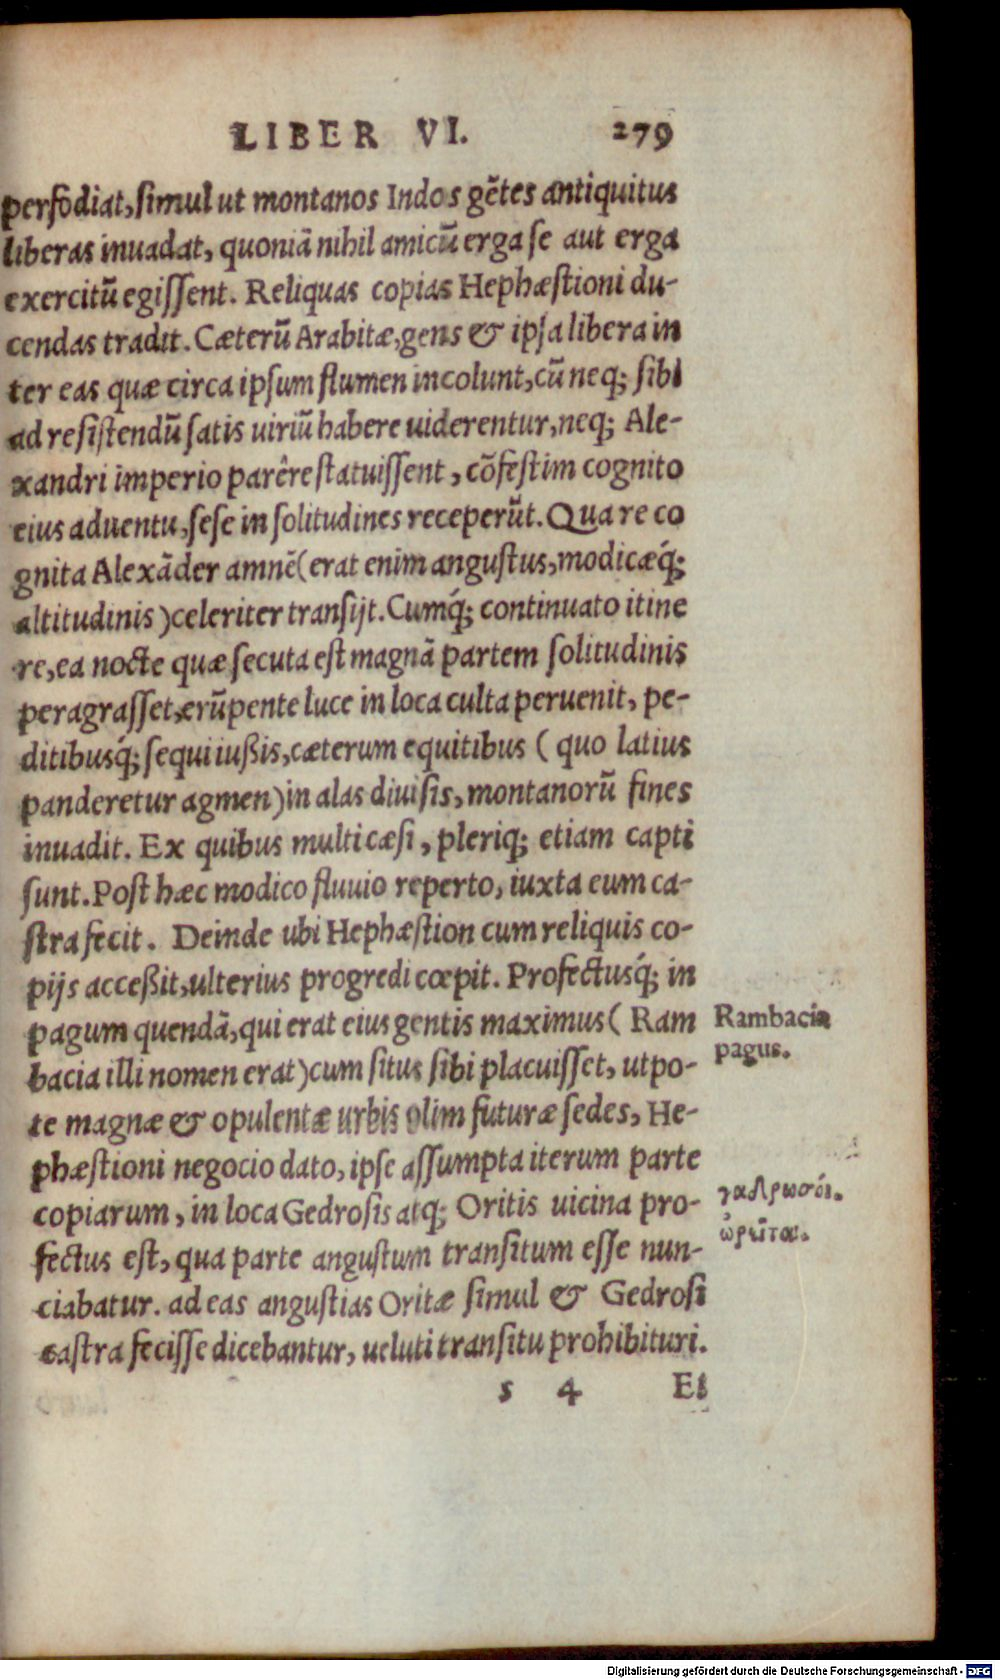 LIBER VI. 279
perfodiat, simul ut montanos Indos gẽtes antiquitus
liberas inuadat, quoniã nihil amicũ erga se aut erga
exercitũ egissent. Reliquas copias Hephæstioni du-
cendas tradit. Cæterũ Arabitæ, gens & ipsa libera in
ter eas quæ circa ipsum flumen incolunt, cũ neq; sibi
ad resistendũ satis uiriũ habere uiderentur, neq; Ale-
xandri imperio parêre statuissent, cõfestim cognito
eius aduentu, sese in solitudines receperũt. Qua re co
gnita Alexãder amnẽ (erat enim angustus, modicæq́;
altitudinis) celeriter transijt. Cumq́; continuato itine
re, ea nocte quæ secuta est magnã partem solitudinis
peragrasset, erũpente luce in loca culta peruenit, pe-
ditibusq́; sequi iußis, cæterum equitibus ( quo latius
panderetur agmen) in alas diuisis, montanorũ fines
inuadit. Ex quibus multi cæsi, pleriq; etiam capti
sunt. Post hæc modico fluuio reperto, iuxta eum ca-
stra fecit. Deinde ubi Hephæstion cum reliquis co-
pijs acceßit, ulterius progredi cœpit. Profectusq́; in
pagum quendã, qui erat eius gentis maximus ( Ram
bacia illi nomen erat) cum situs sibi placuisset, utpo-
te magnæ & opulentæ urbis olim futuræ sedes, He-
phæstioni negocio dato, ipse assumpta iterum parte
copiarum, in loca Gedrosis atq; Oritis uicina pro-
fectus est, qua parte angustum transitum esse nun-
ciabatur. ad eas angustias Oritæ simul & Gedrosi
castra fecisse dicebantur, ueluti transitu prohibituri.
s 4 Et
Rambacia
pagus.
γαδρωσόι.
ὠρεῖται.
Digitalisierung gefördert durch die Deutsche Forschungsgemeinschaft - DFG